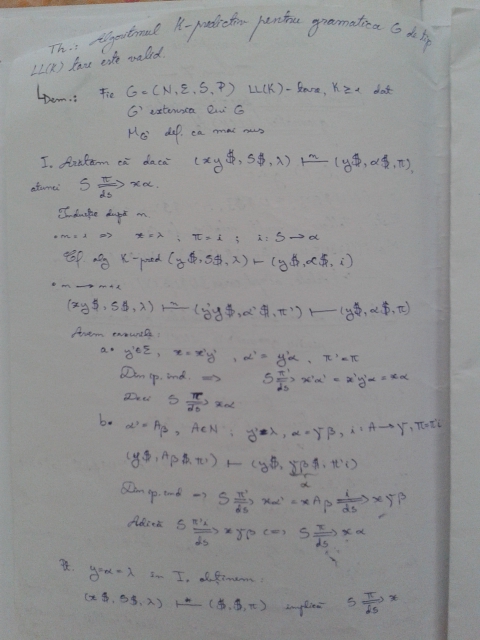 Th.: Algoritmul K-predictiv pentru gramatica G de tip
LL(K) tare este valid.
Dem.: Fie G = (N, Σ, S, P) LL(K)-tare, K ≥ 1 dat
G' extensia lui G
M_G' def. ca mai sus
I. Arătăm că dacă (xy$, S$, λ) ⊢^m (y$, α$, π),
atunci S ⇒^π_ds xα.
Inducție după m.
• m = 1 ⇒ x = λ ; π = i ; i: S → α
Cf. alg K-pred (y$, S$, λ) ⊢ (y$, α$, i)
• m → m+1
(xy$, S$, λ) ⊢^m (y'y$, α'$, π') ⊢ (y$, α$, π)
Avem cazurile:
a• y' ∈ Σ, x = x'y', α' = y'α, π' = π
Din ip. ind. ⇒ S ⇒^π'_ds x'α' = x'y'α = xα
Deci S ⇒^π_ds xα
b• α' = Aβ, A ∈ N ; y' = λ, α = γβ, i: A → γ, π = π'i
(y$, Aβ$, π') ⊢ (y$, γβ$, π'i)
α
Din ip. ind ⇒ S ⇒^π'_ds xα' = xAβ ⇒^i_ds xγβ
Adică S ⇒^π'i_ds xγβ ⇔ S ⇒^π_ds xα
Pt. y = α = λ în I. obținem:
(x$, S$, λ) ⊢^* ($, $, π) implică S ⇒^π_ds x